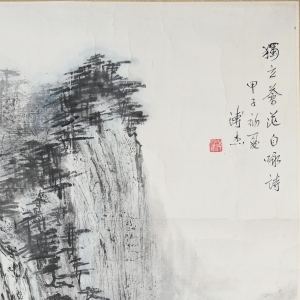 獨立蒼茫自咏诗
甲子初夏